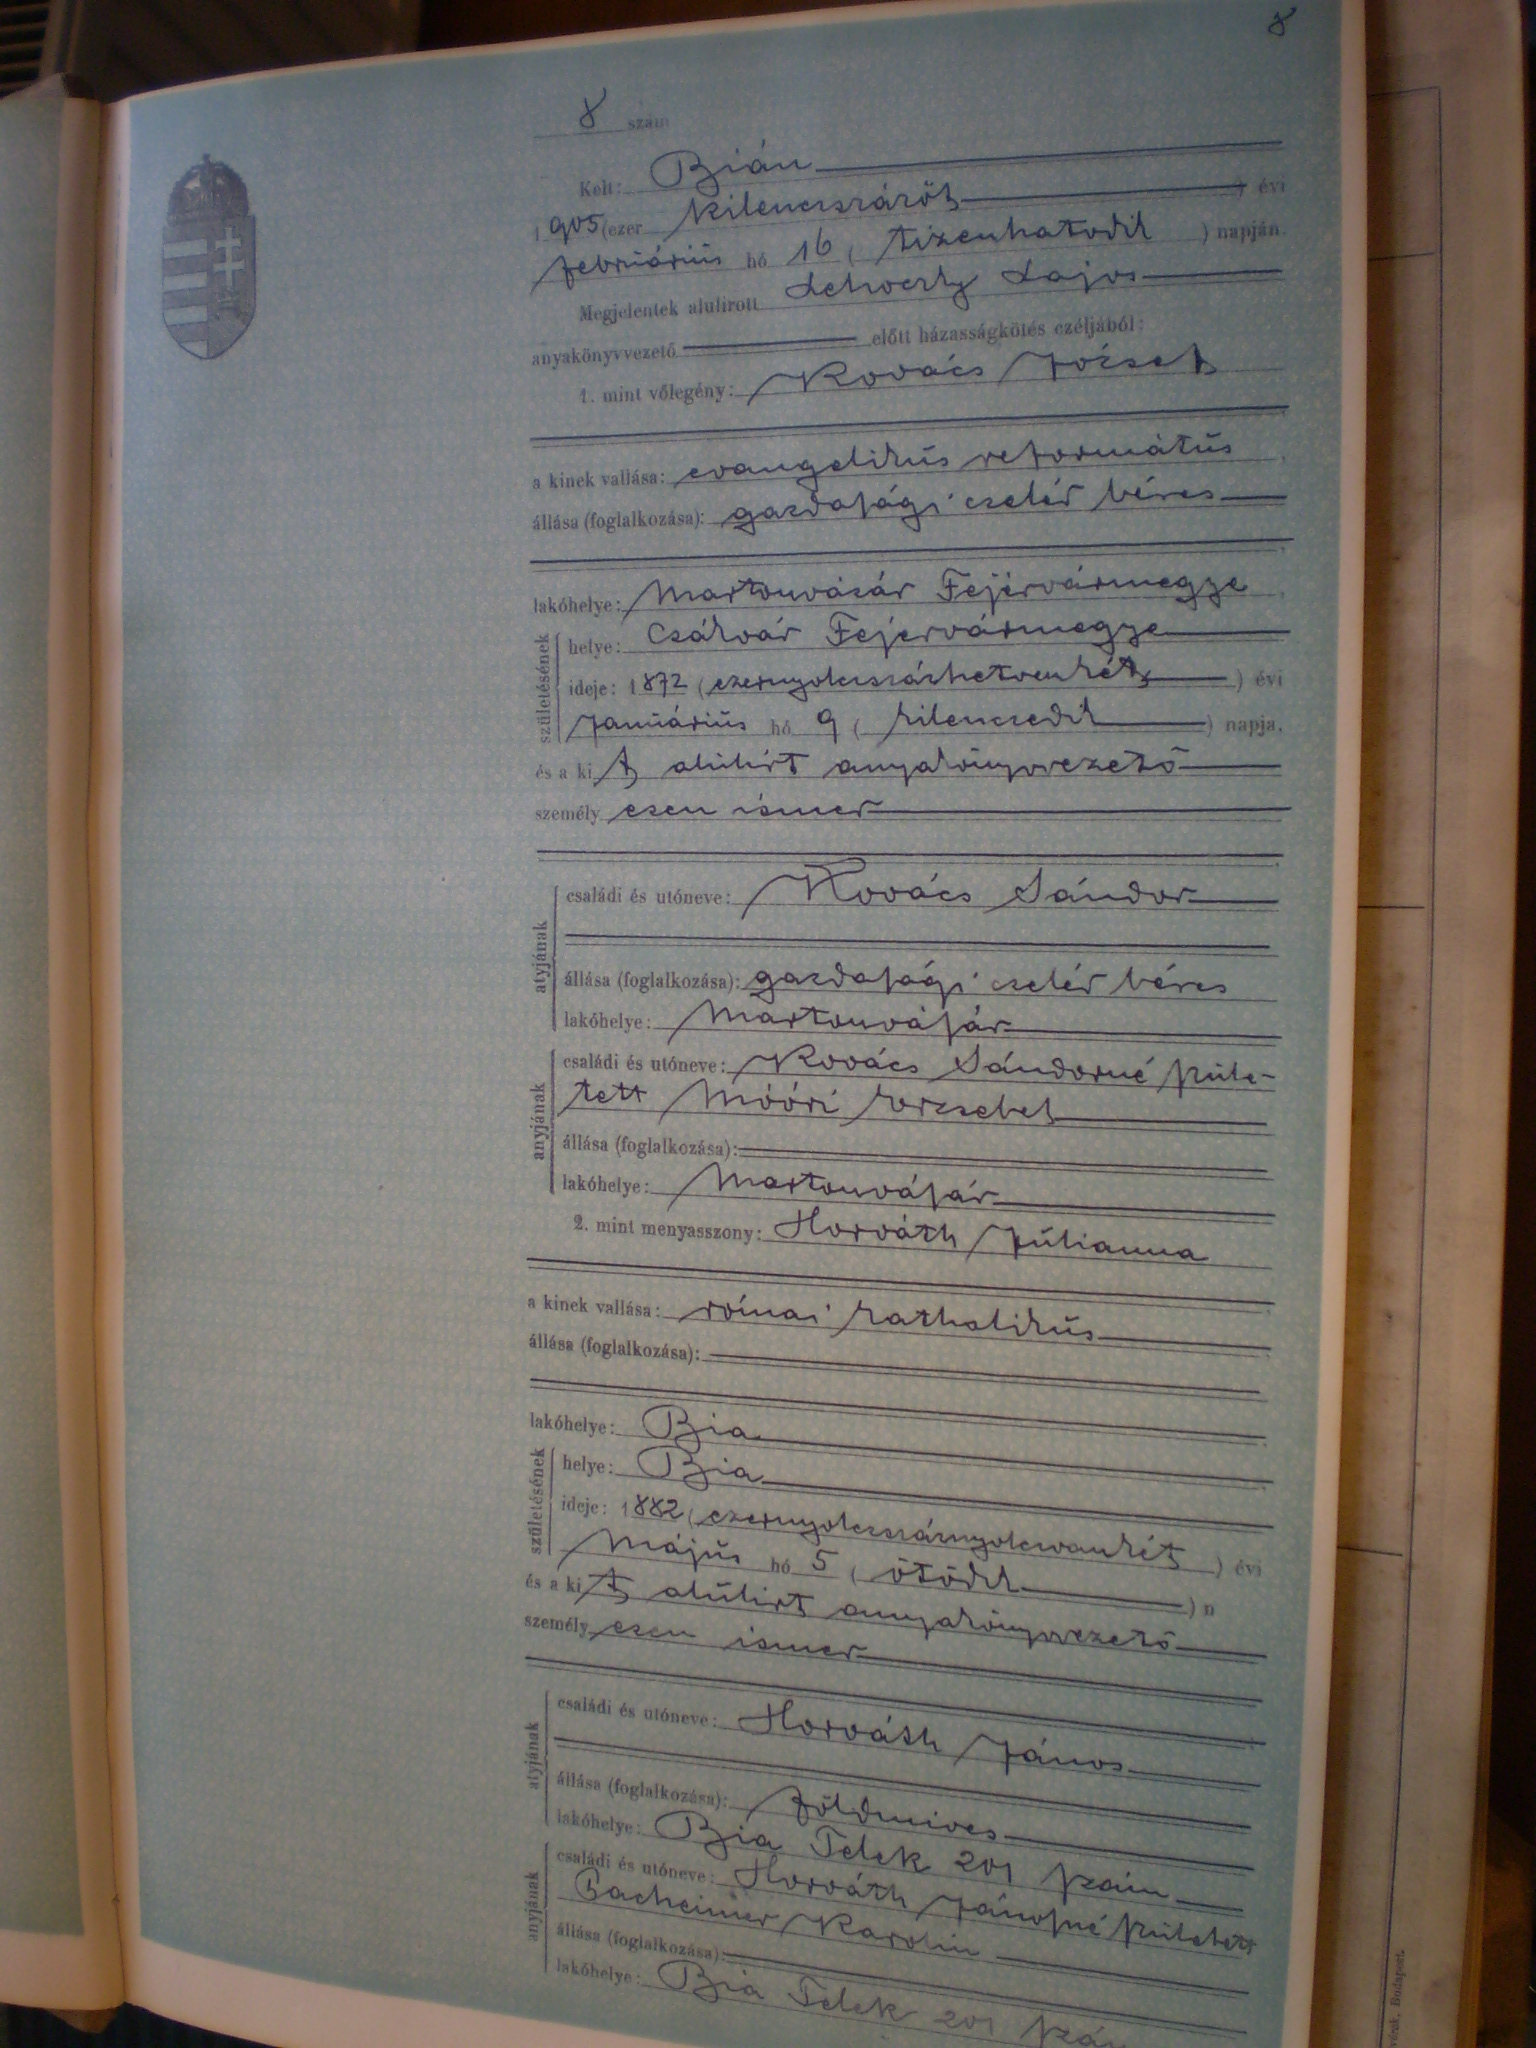 8
8 szám
Kelt: Bián
1905 (ezer kilencszázöt) évi
februáŕiús hó 16 ( tizenhatodik ) napján.
Megjelentek alulirott Lajos
anyakönyvvezető előtt házasságkötés czéljából:
1. mint vőlegény: Kovács József
a kinek vallása: evangelikús reformátús
állása (foglalkozása): gazdasági cseléd béres
lakóhelye: Martonvásár Fejérvármegye
születésének
helye: Csákvár Fejérvármegye
ideje: 1872 (ezernyolczszázhetvenkét) évi
januáriús hó 9 ( kilenczedik ) napja,
és a kit alúlirt anyakönyvvezető
személyesen ismer
atyjának
családi és utóneve: Kovács Sándor
állása (foglalkozása): gazdasági cseléd béres
lakóhelye: Martonvásár
anyjának
családi és utóneve: Kovács Sándorné szüle-
tett Móóri Erzsebet
állása (foglalkozása):
lakóhelye: Martonvásár
2. mint menyasszony: Horváth Júlianna
a kinek vallása: római katholikús
állása (foglalkozása):
lakóhelye: Bia
születésének
helye: Bia
ideje: 1882 (ezernyolczszáznyolczvankét ) évi
Május hó 5 ( ötödik ) n
és a kit alúlirt anyakönyvvezető
személyesen ismer
atyjának
családi és utóneve: Horváth János
állása (foglalkozása): földmives
lakóhelye: Bia Telek 201 szám
anyjának
családi és utóneve: Horváth Jánosné született
Karolin
állása (foglalkozása)
lakóhelye: Bia Telek 201 szám
Budapest.